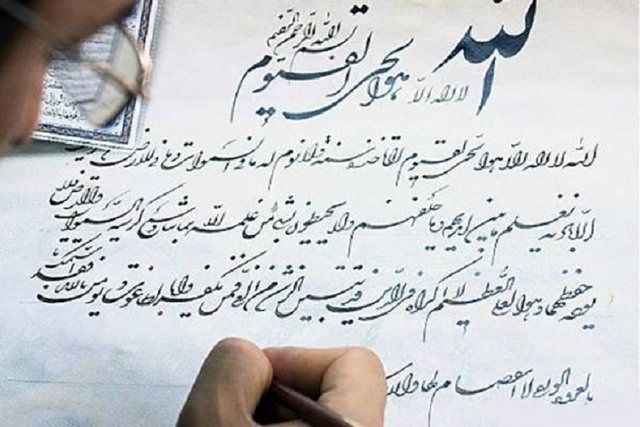 بسم الله الرحمن الرحیم
الله لا اله الا هو الحی القیوم
الله لا اله الا هو الحی القیوم لا تاخذه سنة ولا نوم له ما فی السموات وما فی الارض من
الا باذنه یعلم ما بین ایدیهم وما خلفهم ولا یحیطون بشیء من علمه الا بما شاء وسع کرسیه السموات والارض ولا
یوده حفظهما وهو العلی العظیم لا اکراه فی الدین قد تبین الرشد من الغی فمن یکفر بالطاغوت ویومن بالله فقد استمسک
بالعروة الوثقی لا انفصام لها والله